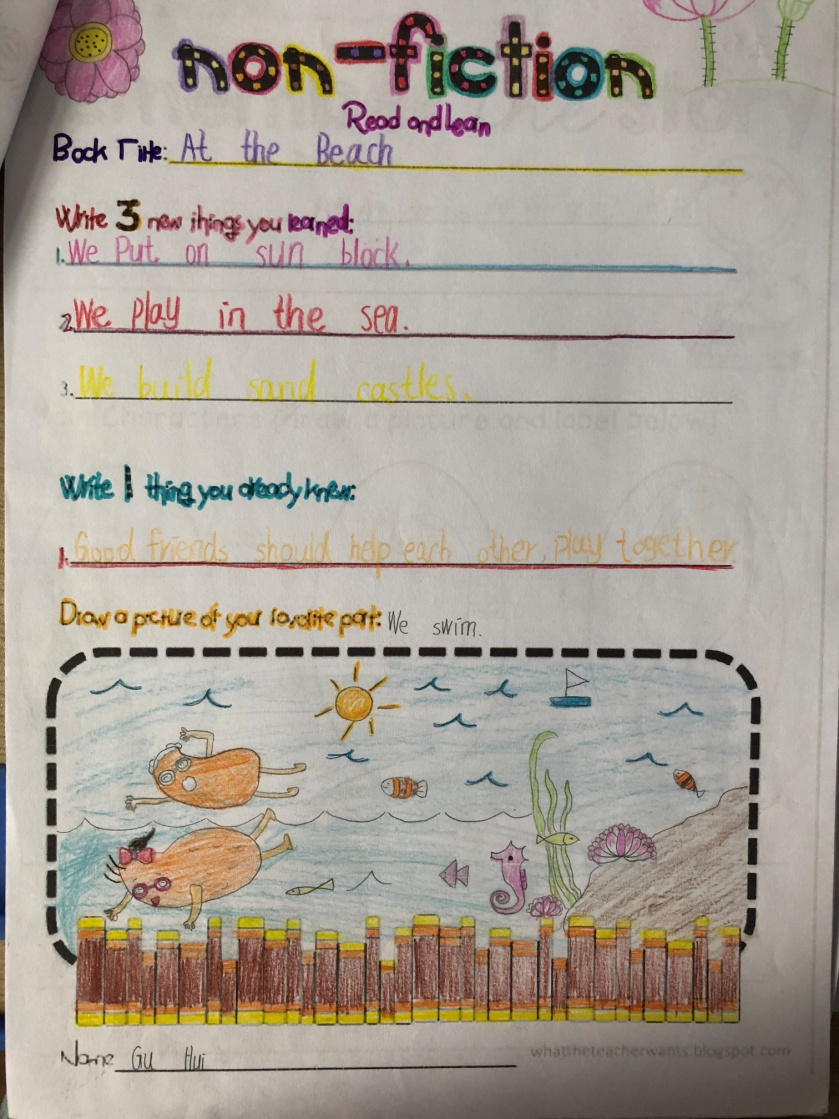 non-fiction
Read and learn
Book Title: At the Beach
Write 3 new things you learned:
1. We Put on sun block.
2. We play in the sea.
3. We build sand castles.
Write 1 thing you already knew:
1. Good friends should help each other, play together
Draw a picture of your favorite part: We swim.
Name Gu Hui
whattheteacherwants.blogspot.com